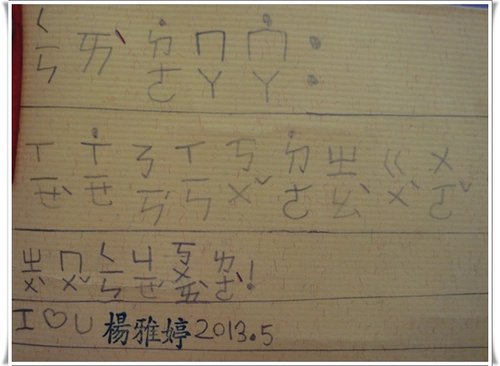 ㄑㄧㄣ ㄞˋ ˙ㄉㄜ ㄇㄚ ˙ㄇㄚ：
ㄒㄧㄝˋ ˙ㄒㄧㄝ ㄋㄧㄣˊ ㄒㄧㄣ ㄎㄨˇ ˙ㄉㄜ ㄓㄠˋ ㄍㄨˋ ㄨㄛˇ
ㄓㄨˋ ㄇㄨˇ ㄑㄧㄣ ㄐㄧㄝˊ ㄎㄨㄞˋ ㄌㄜˋ!
I♡U 楊雅婷2013.5